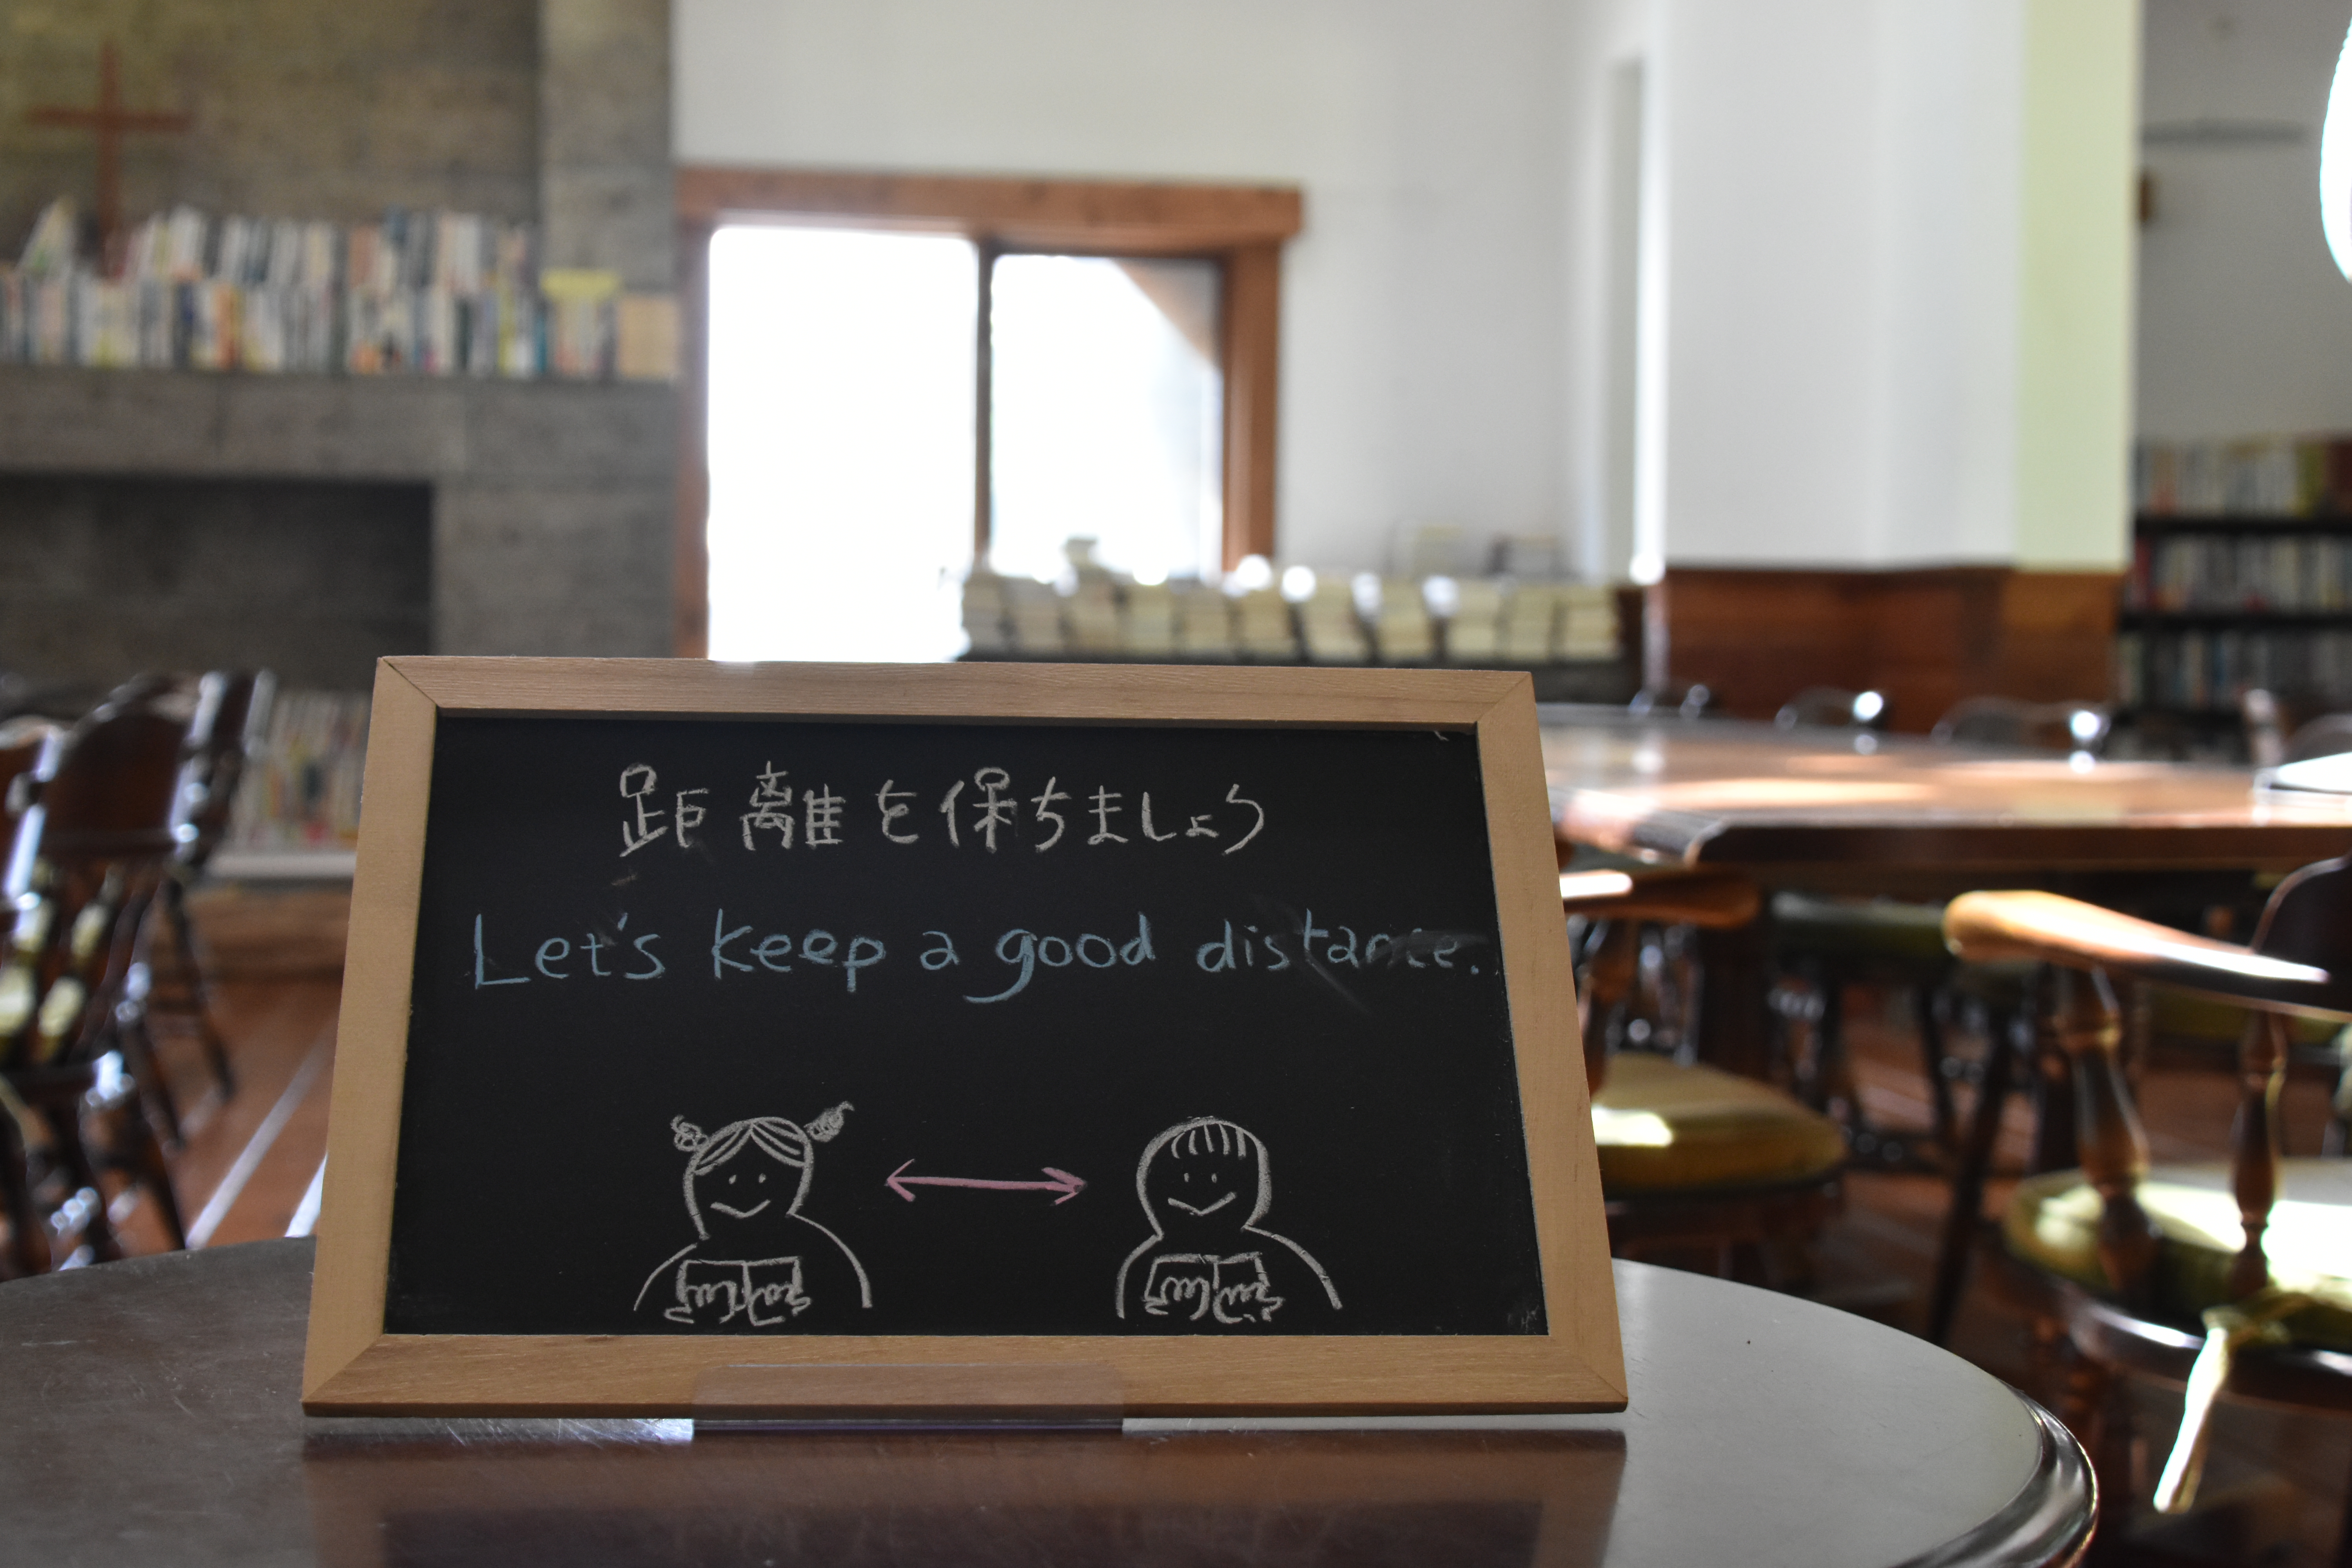 距離を保ちましょう
Let's keep a good distance.